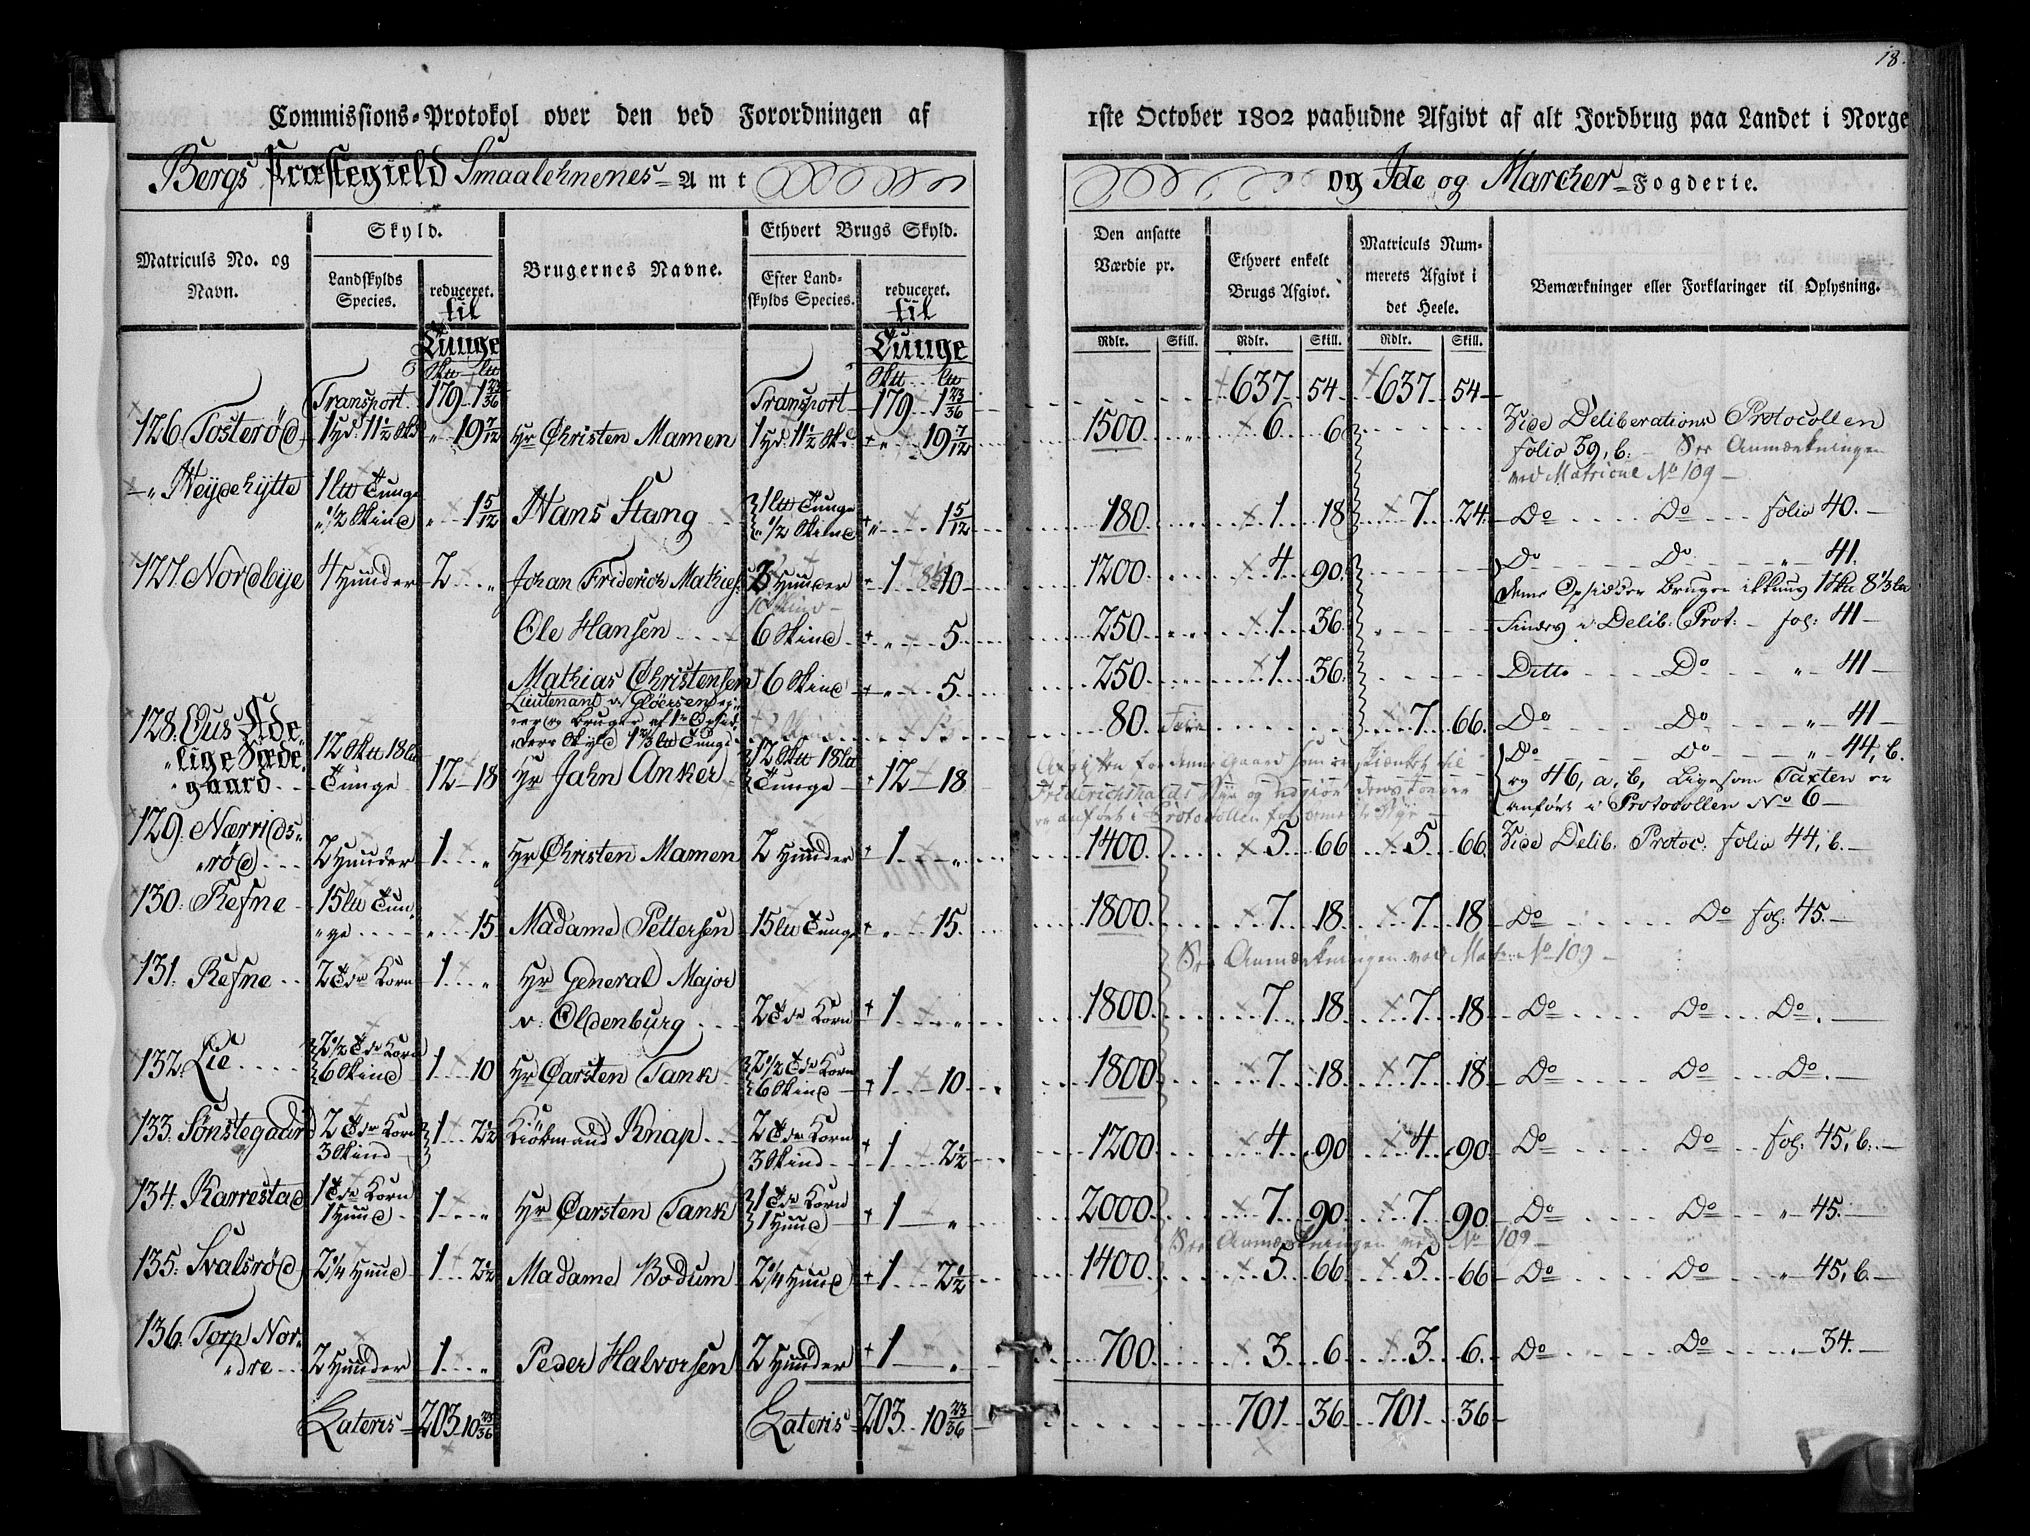 18.
Commissions-Protokol over den ved Forordningen af 1ste October 1802 paabudne Afgivt af alt Jordbrug paa Landet i Norge
Bergs Præstegield Smaalehnenes Amt og Ide og Marcher Fogderie.
Matriculs No. og Navn.
Skyld.
Landskylds Species.
reduceret. til Tunge
Brugernes Navne.
Ethvert Brugs Skyld.
Efter Landskylds Species.
reduceret. til Tunge
Den ansatte Værdie pr.
Ethvert enkelt Brugs Afgivt.
Matriculs Nummerets Afgivt i det Heele.
Bemærkninger eller Forklaringer til Oplysning.
Rdlr. Skill. Rdlr. Skill. Rdlr. Skill.
Transport 179 1 23/36 Transport 179 1 23/36 637 54 637 54
126. Tosterød 1 Hd. 11 1/2 Sk. " 19 7/12 Hr Christen Mamen 1 Hd. 11 1/2 Sk. " 19 7/12 1500 " 6 6 Vide Deliberations Protocollen
folio 39, b. See Anmærkningen
ved Matricul No 109
" Heydehytte 1 ltt Tunge
1/2 Skind " 1 5/12 Hans Stang 1 ltt Tunge 1/2 Skind " 1 5/12 180 1 18 7 24 Do Do folio 40.
127. Nordbye 4 Hunder 2 " Johan Friderich Mathies: Hunder 1 10 1200 4 90 Do Do " 41.
denne Opsidder bruger ikkuns 1 Sktt 8 1/3 ltt
Ole Hansen 6 Skind " 5 250 1 36 Findes i Delib: Prot: fol: 41
Mathias Christensen 6 Skind " 5 250 1 36 Ditto Do " 41
Lieutenant v Gløersen
80 7 66 Do Do " 41
128. Ous Adelige Sædegaard 12 Sktt 18 ltt Tunge 12 18 Hr Jahn Anker 12 Sktt 18 ltt Tunge 12 18 Do Do " 44, b.
og 46, a, b, Ligesom Taxten er
anført i Protocollen No 6
129. Nærridsrød 2 Hunder 1 " Hr Christen Mamen 2 Hunder 1 " 1400 5 66 5 66 Vide Delib. Protoc: folio 44, b.
130. Refne 15 ltt Tunge " 15 Madame Pettersen 15 ltt Tunge " 15 1800 7 18 7 18 Do Do fol: 45.
See Anmærkningen ved Matr: No 109
131. Refne 2 Tde Korn 1 " Hr General Major
v: Oldenburg 2 Tde Korn 1 " 1800 7 18 7 18 Do Do Do.
132. Lie 2 1/2 Tde Korn
6 Skind 1 10 Hr Carsten Tank 2 1/2 Tde Korn 6 Skind 1 10 1800 7 18 7 18 Do Do Do.
133. Sønstegaard 2 Tde Korn
3 Skind 1 2 1/2 Kiøbmand Knap 2 Tde Korn 3 Skind 1 2 1/2 1200 4 90 4 90 Do Do fol: 45, b.
134. Karrestad 1 Tde Korn
1 Hund 1 " Hr Carsten Tank 1 Tde Korn 1 Hund 1 " 2000 7 90 7 90 Do Do " 45.
See Anmærkningen ved No 109
135. Svalsrød 2 1/4 Hund 1 2 1/2 Madame Bodum 2 1/4 Hund 1 2 1/2 1400 5 66 5 66 Do Do " 45, b.
136. Torp Nordre 2 Hunder 1 " Peder Halvorsen 2 Hunder 1 " 700 3 6 3 6 Do Do " 34.
Lateris 203 10 23/36 Lateris 203 10 23/36 701 36 701 36